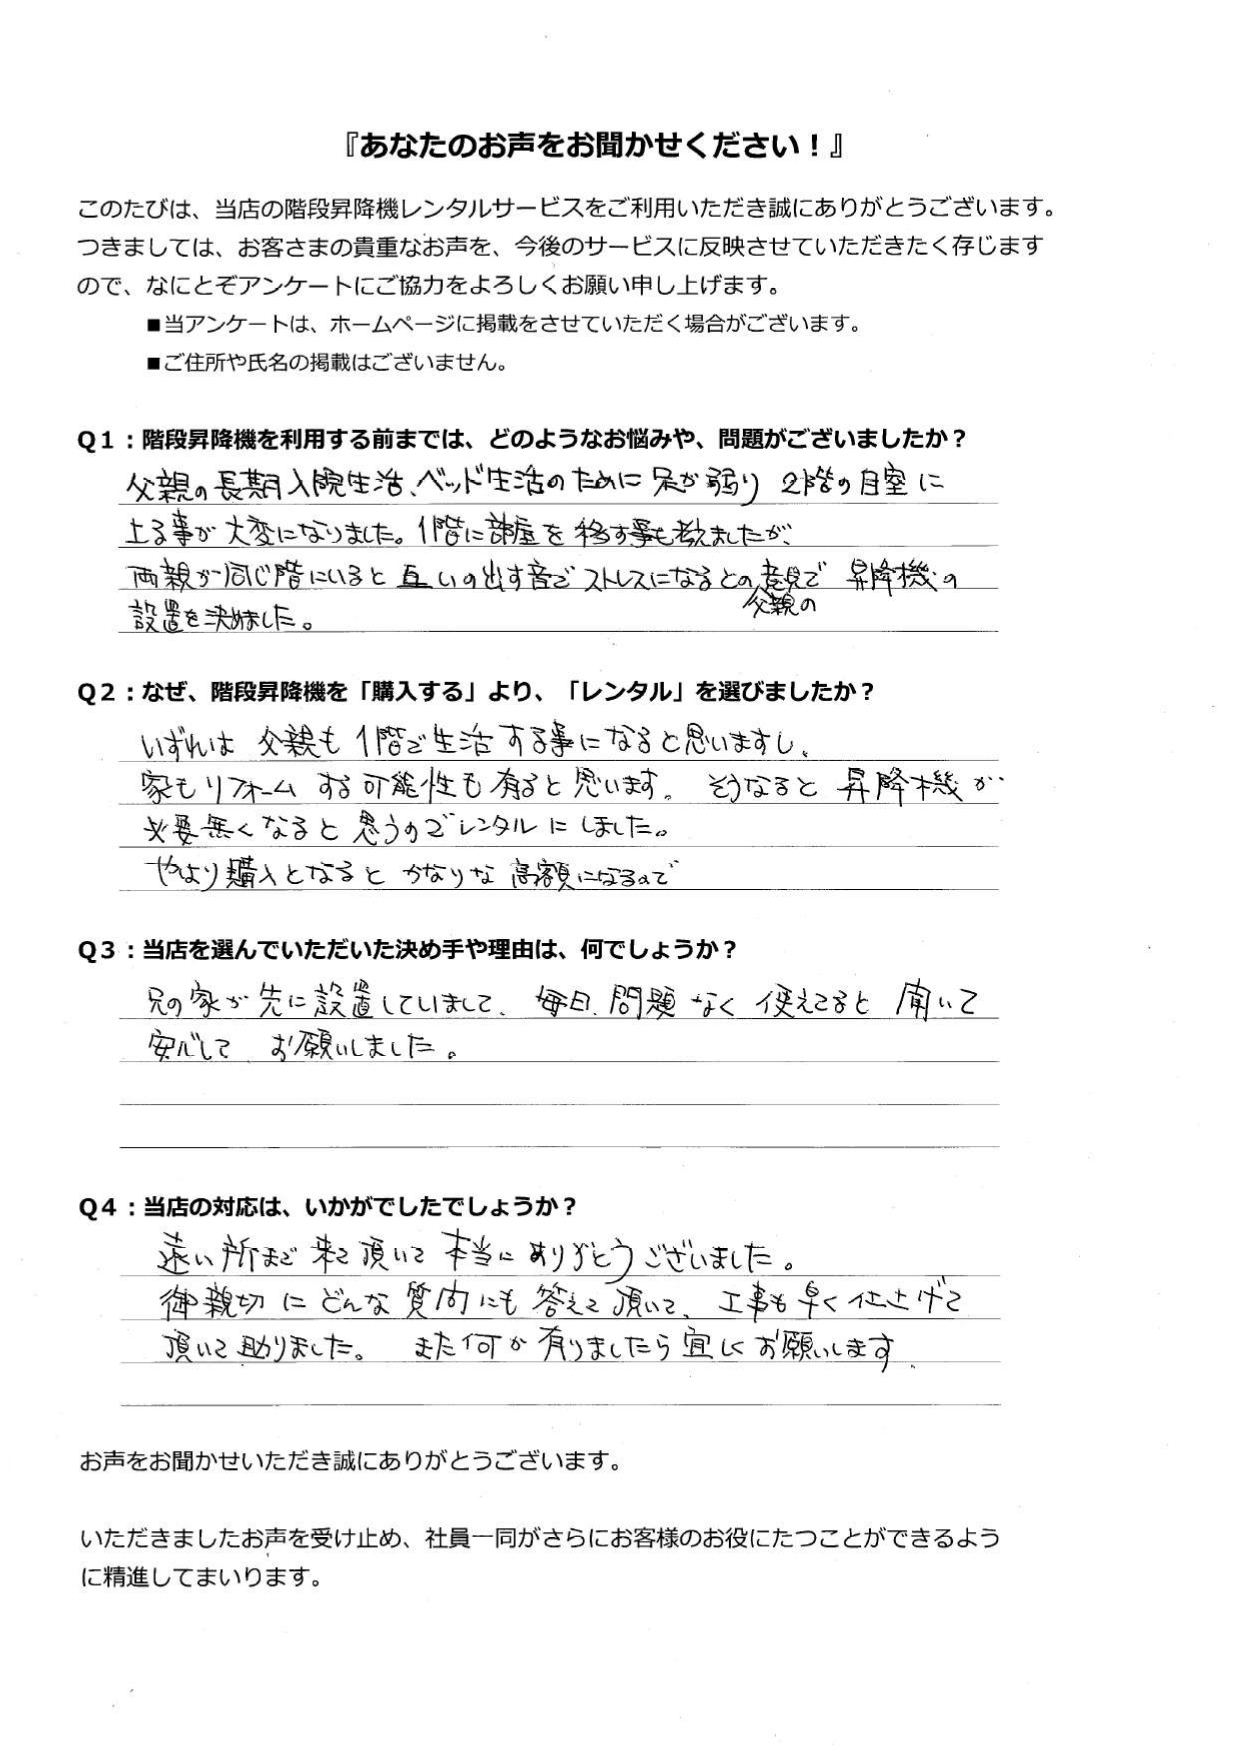 『あなたのお声をお聞かせください！』
このたびは、当店の階段昇降機レンタルサービスをご利用いただき誠にありがとうございます。
つきましては、お客さまの貴重なお声を、今後のサービスに反映させていただきたく存じます
ので、なにとぞアンケートにご協力をよろしくお願い申し上げます。
■当アンケートは、ホームページに掲載をさせていただく場合がございます。
■ご住所や氏名の掲載はございません。
Q1：階段昇降機を利用する前までは、どのようなお悩みや、問題がございましたか？
父親の長期入院生活、ベッド生活のために足が弱り 2階の自室に
上る事が大変になりました。1階に部屋を移す事も考えましたが、
両親が同じ階にいると互いの出す音でストレスになるとの意見で 昇降機の
父親の
設置を決めました。
Q2：なぜ、階段昇降機を「購入する」より、「レンタル」を選びましたか？
いずれは 父親も1階で生活する事になると思いますし、
家もリフォームする可能性も有ると思います。そうなると昇降機が
必要無くなると思うのでレンタルにしました。
やはり購入となると かなりな高額になるので
Q3：当店を選んでいただいた決め手や理由は、何でしょうか？
兄の家が先に設置していまして、毎日、問題なく使えてると聞いて
安心して お願いしました。
Q4：当店の対応は、いかがでしたでしょうか？
遠い所まで来て頂いて本当にありがとうございました。
御親切にどんな質問にも答えて頂いて、工事も早く仕上げて
頂いて助りました。 また何か有りましたら宜しくお願いします。
お声をお聞かせいただき誠にありがとうございます。
いただきましたお声を受け止め、社員一同がさらにお客様のお役にたつことができるよう
に精進してまいります。